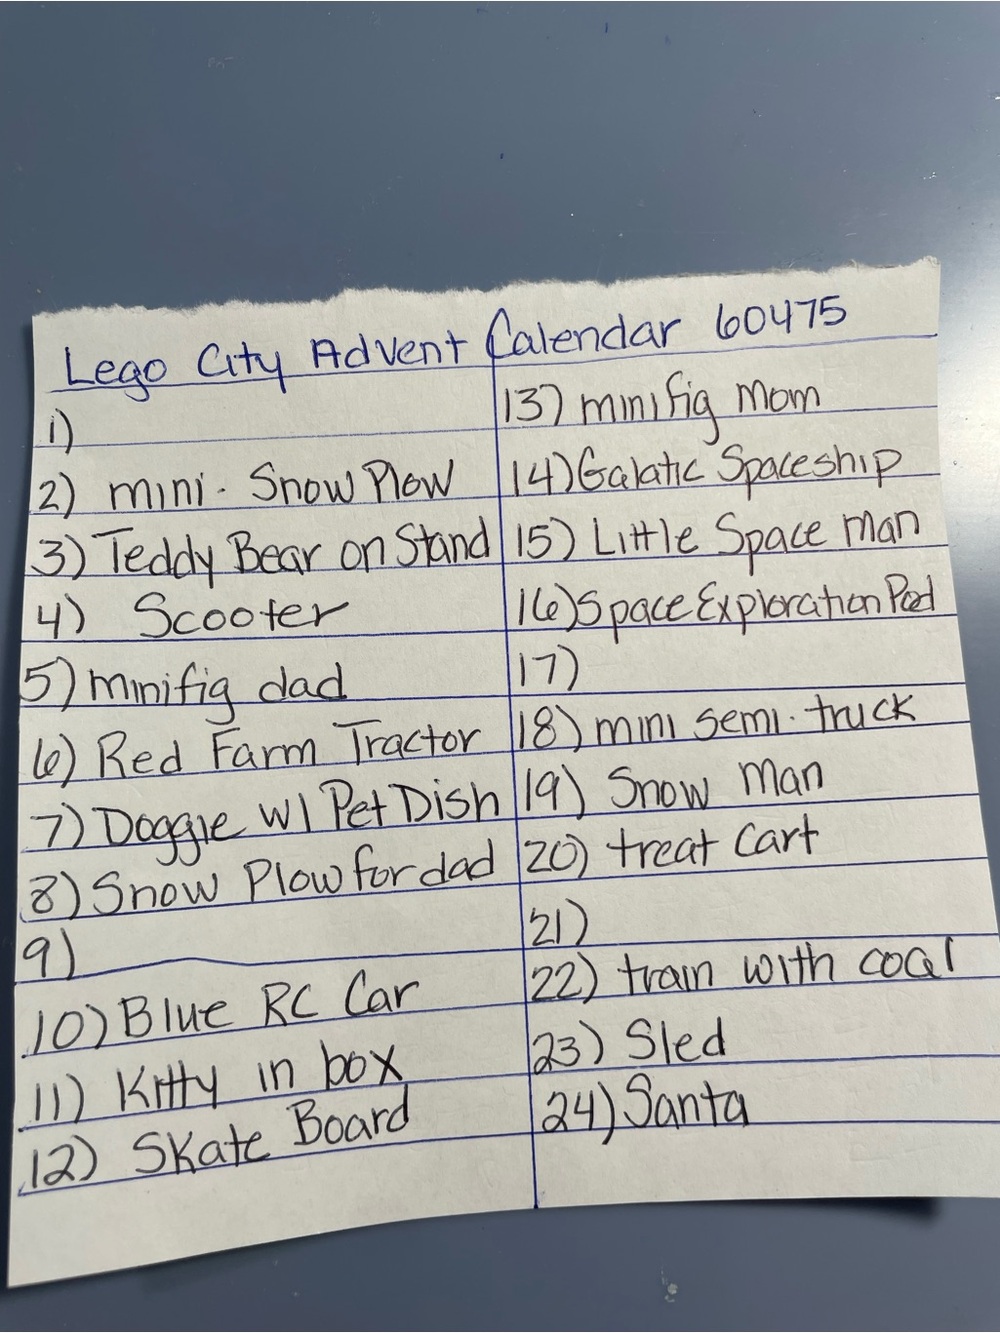 Lego City Advent Calendar 60475
1)
2) mini. Snow Plow
3) Teddy Bear on Stand
4) Scooter
5) minifig dad
6) Red Farm Tractor
7) Doggie w/ Pet Dish
8) Snow Plow for dad
9)
10) Blue RC Car
11) Kitty in box
12) Skate Board
13) minifig Mom
14) Galatic Spaceship
15) Little Space Man
16) Space Exploration Pod
17)
18) mini semi. truck
19) Snow Man
20) treat Cart
21)
22) train with coal
23) Sled
24) Santa